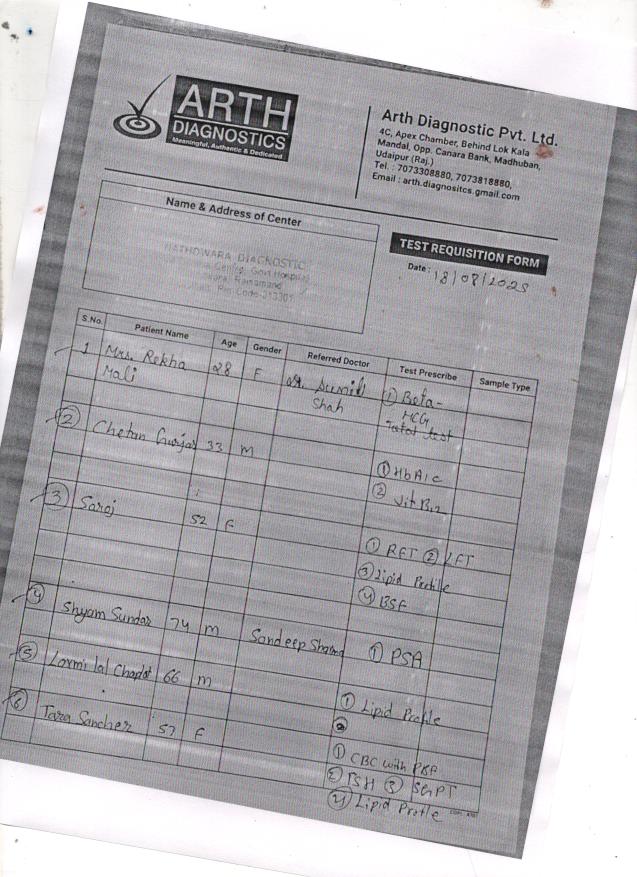 ARTH
DIAGNOSTICS
Meaningful, Authentic & Dedicated
Arth Diagnostic Pvt. Ltd.
4C, Apex Chamber, Behind Lok Kala
Mandal, Opp. Canara Bank, Madhuban,
Udaipur (Raj.)
Tel. : 7073308880, 7073818880,
Email : arth.diagnositcs.gmail.com
Name & Address of Center
NATHDWARA DIAGNOSTIC
Govt Hospital
Rajsamand
Pin Code-313301
TEST REQUISITION FORM
Date : 18/08/2025
S.No. Patient Name Age Gender Referred Doctor Test Prescribe Sample Type
1 Mrs. Rekha 28 F Dr. Sunil ① Beta-
Mali Shah HCG
Total test
② Chetan Gurjar 33 M
① HbA1c
② Vit B12
③ Saroj 52 F
① RFT ② LFT
③ Lipid Profile
④ BSF
④ Shyam Sundar 74 M Sandeep Sharma ① PSA
⑤ Laxmi lal Chaplot 66 M
① Lipid Profile
⑥ Tara Sancher 57 F
① CBC with PBF
② TSH ③ SGPT
④ Lipid Profile